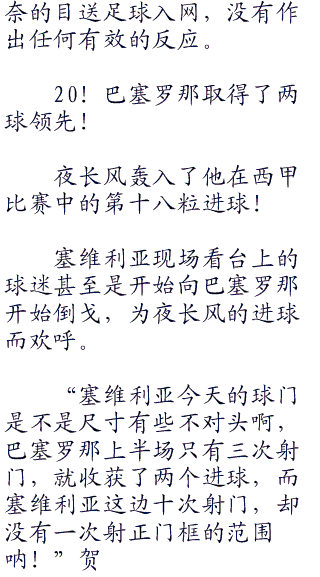 奈的目送足球入网，没有作
出任何有效的反应。
20！巴塞罗那取得了两
球领先！
夜长风轰入了他在西甲
比赛中的第十八粒进球！
塞维利亚现场看台上的
球迷甚至是开始向巴塞罗那
开始倒戈，为夜长风的进球
而欢呼。
“塞维利亚今天的球门
是不是尺寸有些不对头啊，
巴塞罗那上半场只有三次射
门，就收获了两个进球，而
塞维利亚这边十次射门，却
没有一次射正门框的范围
呐！”贺